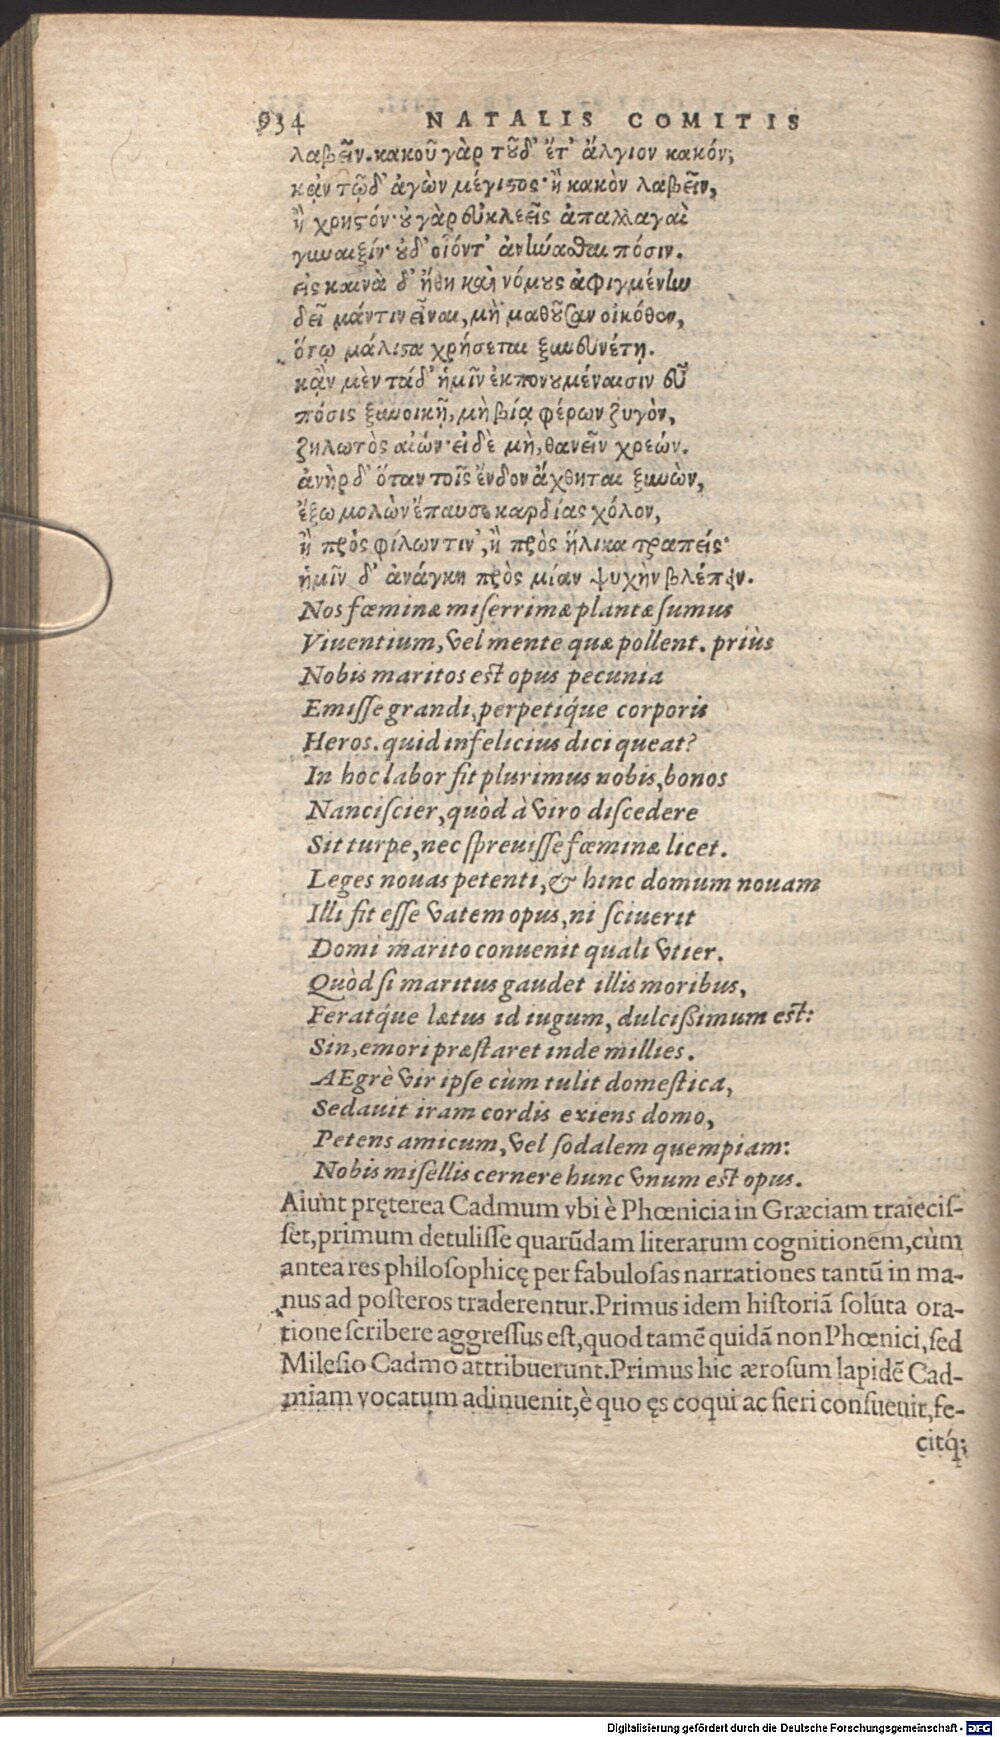 934 NATALIS COMITIS
λαβεῖν. κακοῦ γὰρ τοῦδ' ἔτ' ἄλγιον κακόν;
κᾀν τῷδ' ἀγὼν μέγιστος· ἢ κακὸν λαβεῖν,
ἢ χρηστόν· οὐ γὰρ εὐκλεεῖς ἀπαλλαγαὶ
γυναιξίν· οὐδ' οἷόντ' ἀνήνασθαι πόσιν.
εἰς καινὰ δ' ἤθη καὶ νόμους ἀφιγμένην
δεῖ μάντιν εἶναι, μὴ μαθοῦσαν οἴκοθεν,
ὅτῳ μάλιστα χρήσεται ξυνευνέτῃ.
κᾂν μὲν τάδ' ἡμῖν ἐκπονουμέναισιν εὖ
πόσις ξυνοικῇ, μὴ βίᾳ φέρων ζυγὸν,
ζηλωτὸς αἰών· εἰ δὲ μὴ, θανεῖν χρεών.
ἀνὴρ δ' ὅταν τοῖς ἔνδον ἄχθηται ξυνὼν,
ἔξω μολὼν ἔπαυσε καρδίας χόλον,
ἢ πρὸς φίλων τιν', ἢ πρὸς ἥλικα τραπείς·
ἡμῖν δ' ἀνάγκη πρὸς μίαν ψυχὴν βλέπειν.
Nos fœminæ miserrimæ plantæ sumus
Viuentium, vel mente quæ pollent. priùs
Nobis maritos est opus pecunia
Emisse grandi, perpetiq́ue corporis
Heros. quid infelicius dici queat?
In hoc labor fit plurimus nobis, bonos
Nanciscier, quòd à viro discedere
Sit turpe, nec spreuisse fœminæ licet.
Leges nouas petenti, & hinc domum nouam
Illi fit esse vatem opus, ni sciuerit
Domi marito conuenit quali vtier.
Quòd si maritus gaudet illis moribus,
Feratq́ue lætus id iugum, dulcißimum est:
Sin, emori præstaret inde millies.
AEgrè vir ipse cùm tulit domestica,
Sedauit iram cordis exiens domo,
Petens amicum, vel sodalem quempiam:
Nobis misellis cernere hunc vnum est opus.
Aiunt pręterea Cadmum vbi è Phœnicia in Græciam traiecis-
set, primum detulisse quarũdam literarum cognitionem, cùm
antea res philosophicę per fabulosas narrationes tantũ in ma-
nus ad posteros traderentur. Primus idem historiã soluta ora-
tione scribere aggressus est, quod tamẽ quidã non Phœnici, sed
Milesio Cadmo attribuerunt. Primus hic ærosum lapidẽ Cad-
miam vocatum adinuenit, è quo ęs coqui ac fieri consueuit, fe-
citq́;
Digitalisierung gefördert durch die Deutsche Forschungsgemeinschaft - DFG